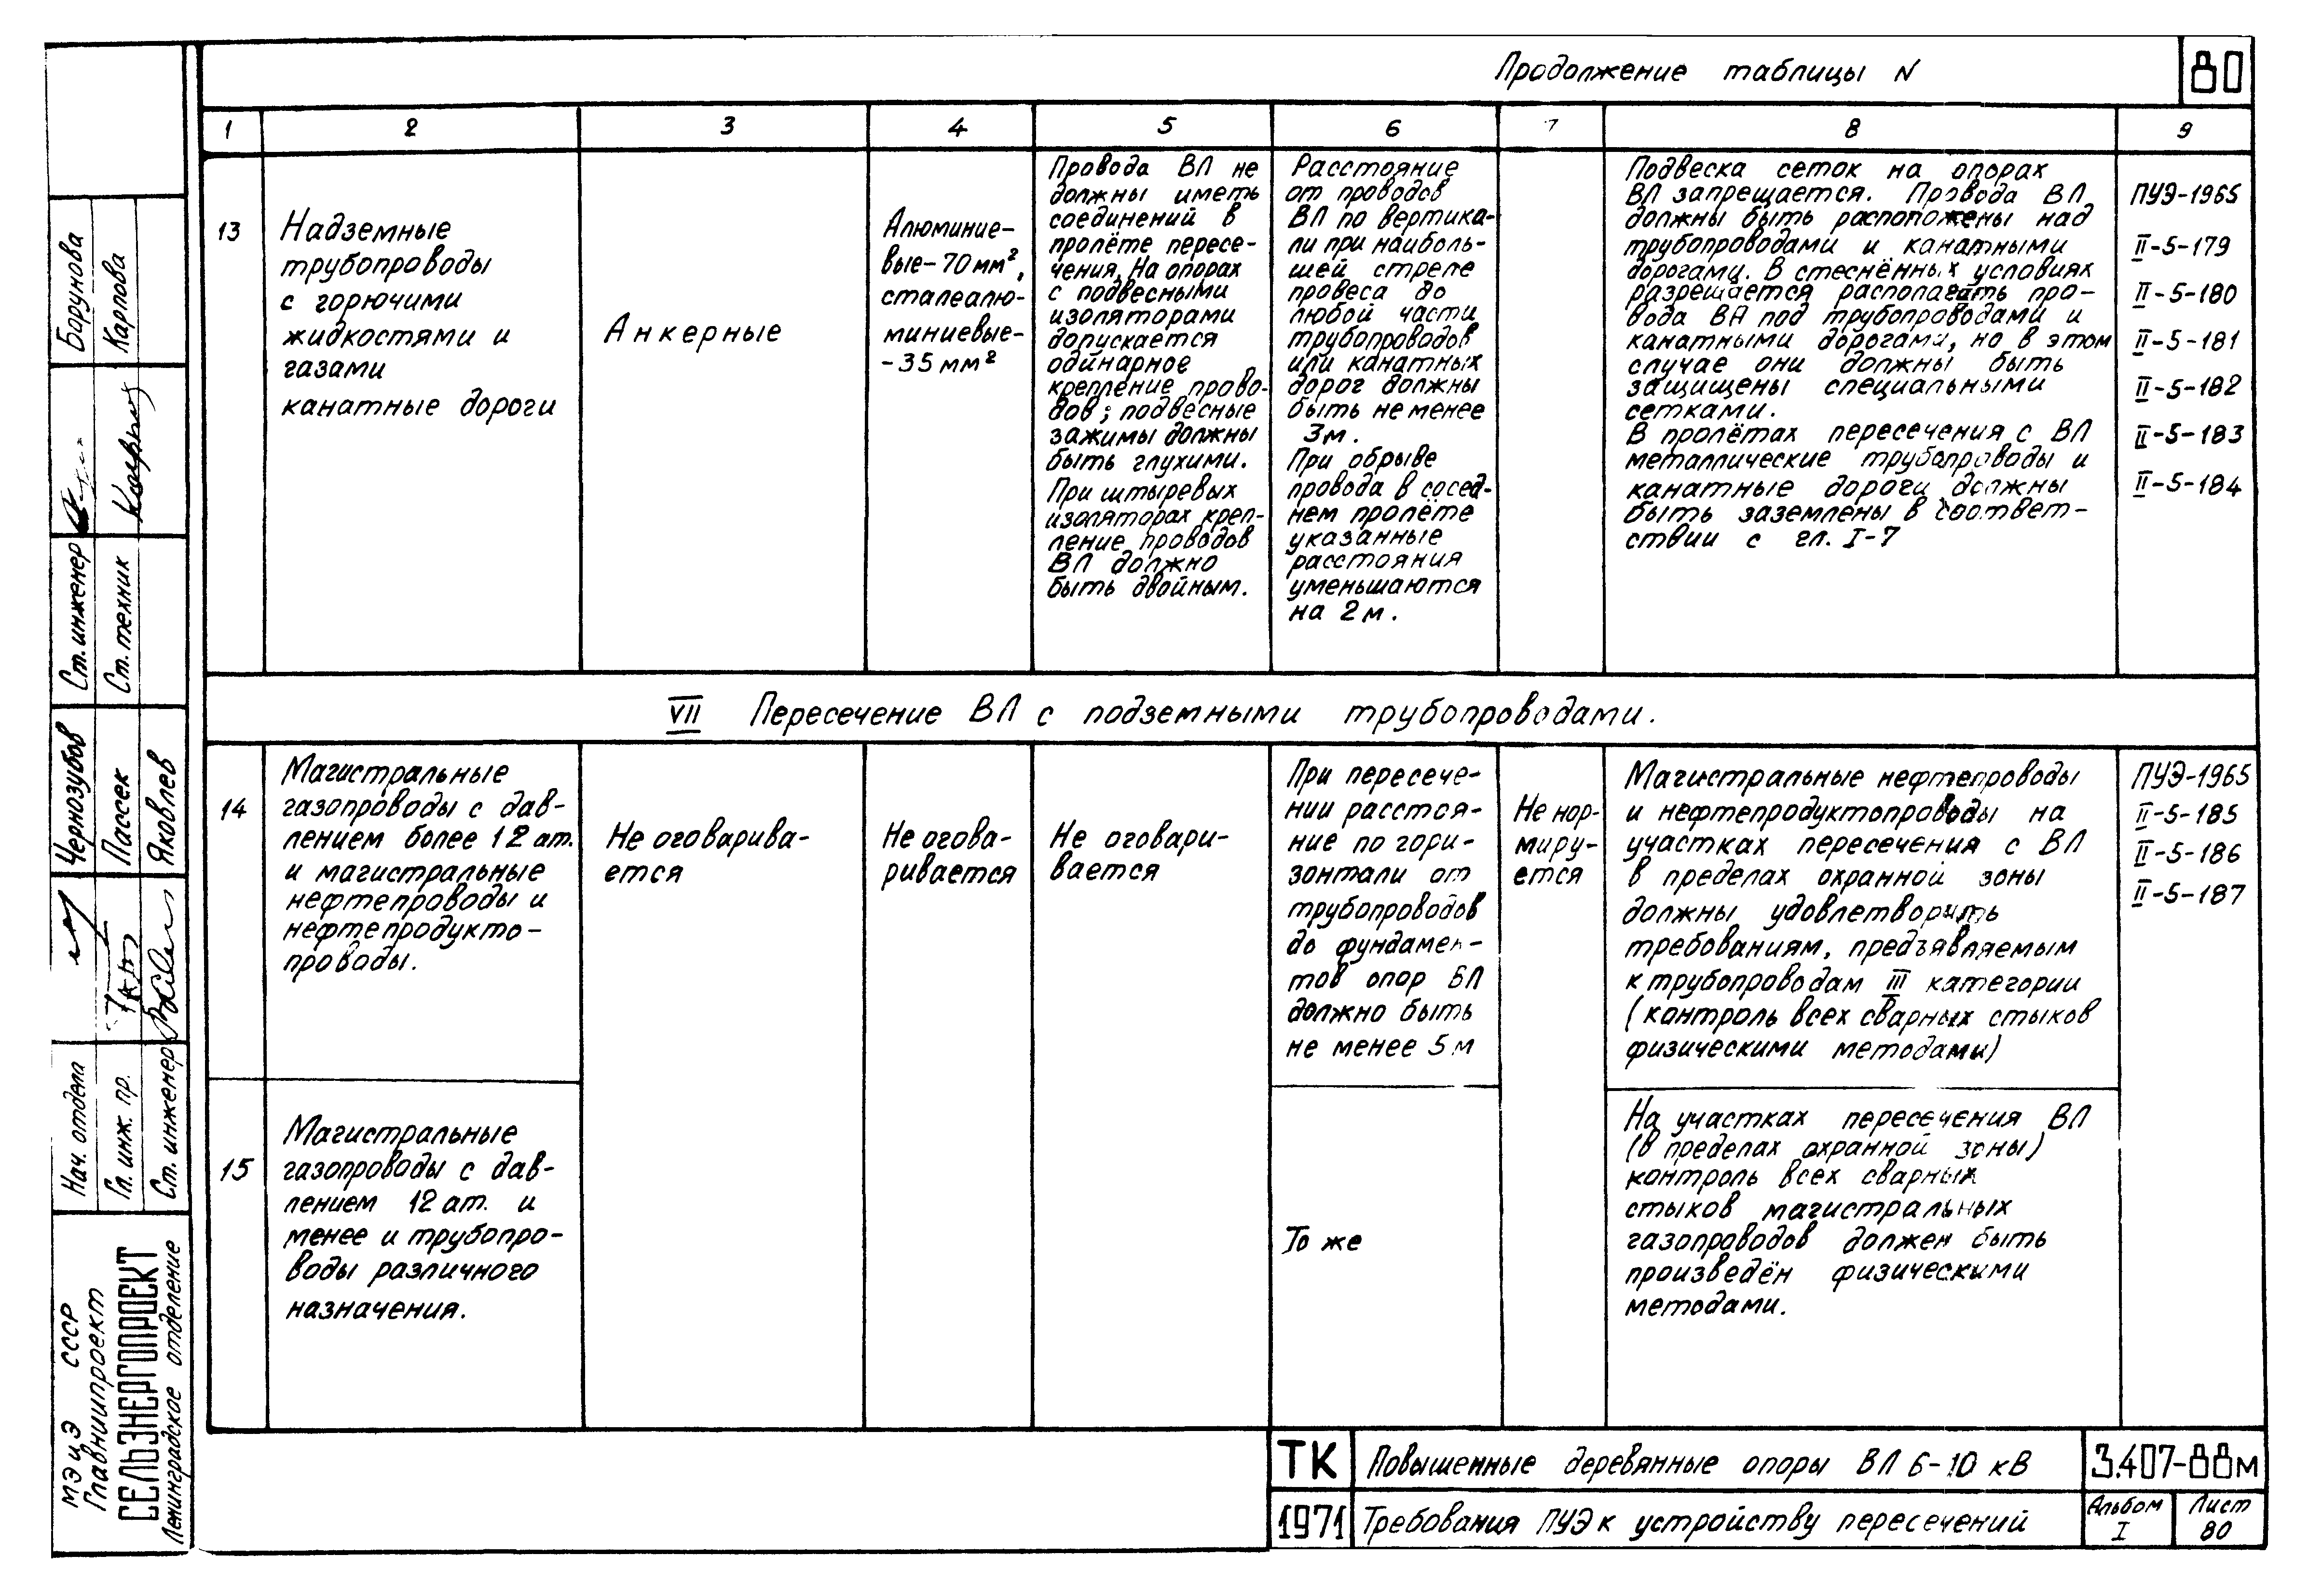 Продолжение таблицы N
80
1 2 3 4 5 6 7 8 9
13
Надземные
трубопроводы
с горючими
жидкостями и
газами
канатные дороги
Анкерные
Алюминие-
вые-70мм²,
сталеалю-
миниевые-
-35мм²
Провода ВЛ не
должны иметь
соединений в
пролёте пересе-
чения. На опорах
с подвесными
изоляторами
допускается
одинарное
крепление прово-
дов; подвесные
зажимы должны
быть глухими.
При штыревых
изоляторах креп-
ление проводов
ВЛ должно
быть двойным.
Расстояние
от проводов
ВЛ по вертика-
ли при наиболь-
шей стреле
провеса до
любой части
трубопроводов
или канатных
дорог должны
быть не менее
3м.
При обрыве
провода в сосед-
нем пролёте
указанные
расстояния
уменьшаются
на 2м.
Подвеска сеток на опорах
ВЛ запрещается. Провода ВЛ
должны быть расположены над
трубопроводами и канатными
дорогами. В стеснённых условиях
разрешается располагать про-
вода ВЛ под трубопроводами и
канатными дорогами, но в этом
случае они должны быть
защищены специальными
сетками.
В пролётах пересечения с ВЛ
металлические трубопроводы и
канатные дороги должны
быть заземлены в соответ-
ствии с гл. I-7
ПУЭ-1965
II-5-179
II-5-180
II-5-181
II-5-182
II-5-183
II-5-184
VII Пересечение ВЛ с подземными трубопроводами.
14
Магистральные
газопроводы с дав-
лением более 12 ат.
и магистральные
нефтепроводы и
нефтепродукто-
проводы.
Не оговарива-
ется
Не огова-
ривается
Не оговари-
вается
При пересече-
нии расстоя-
ние по гори-
зонтали от
трубопроводов
до фундамен-
тов опор ВЛ
должно быть
не менее 5м
Не нор-
миру-
ется
Магистральные нефтепроводы
и нефтепродуктопроводы на
участках пересечения с ВЛ
в пределах охранной зоны
должны удовлетворить
требованиям, предъявляемым
к трубопроводам III категории
(контроль всех сварных стыков
физическими методами)
ПУЭ-1965
II-5-185
II-5-186
II-5-187
15
Магистральные
газопроводы с дав-
лением 12 ат. и
менее и трубопро-
воды различного
назначения.
То же
На участках пересечения ВЛ
(в пределах охранной зоны)
контроль всех сварных
стыков магистральных
газопроводов должен быть
произведён физическими
методами.
ТК
1971
Повышенные деревянные опоры ВЛ 6-10 кВ
Требования ПУЭ к устройству пересечений
3.407-88м
Альбом
I
Лист
80
Ст. инженер Борунова
Ст. техник Карпова
Нач. отдела Чернозубов
Гл. инж. пр. Пассек
Ст. инженер Яковлев
МЭиЭ СССР
Главниипроект
СЕЛЬЭНЕРГОПРОЕКТ
Ленинградское отделение